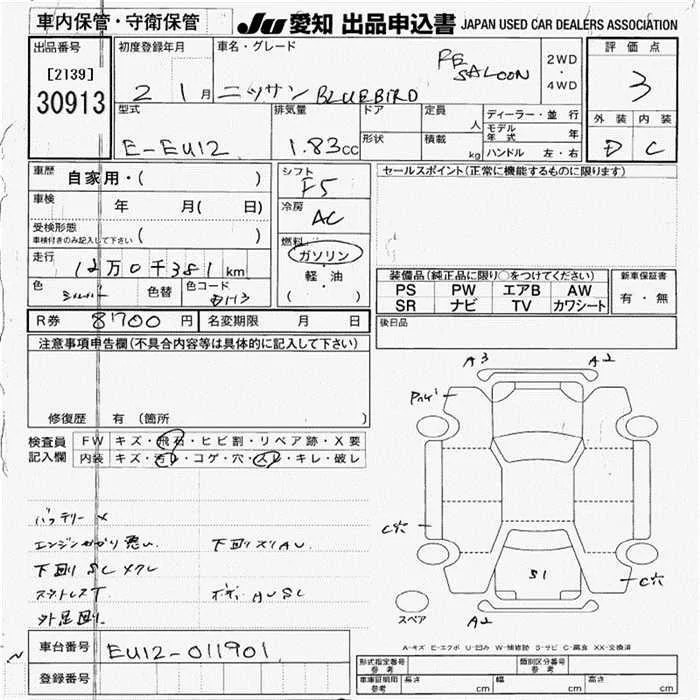 車内保管・守衛保管 JU 愛知 出品申込書 JAPAN USED CAR DEALERS ASSOCIATION
出品番号 初度登録年月 車名・グレード 2WD ・ 4WD 評価点
[2139] 2 1月 ニッサン BLUEBIRD SALOON 3
30913
型式 排気量 ドア 定員 人 ディーラー・並行 外装 内装
形状 積載 kg モデル年式 年
E-EU12 1.83cc ハンドル 左・右 D C
車歴 自家用・( ) シフト F5 セールスポイント(正常に機能するものに限ります)
車検 年 月( 日) 冷房 AC
受検形態
車検付きのみ記入して下さい ( ) 燃料 ガソリン
走行 12万0千381km 軽・油 装備品(純正品に限り○をつけてください) 新車保証書
色 シルバー 色替 色コード ( ) PS PW エアB AW 有・無
SR ナビ TV カワシート
R券 8700円 名変期限 月 日 後日品
注意事項申告欄(不具合内容等は具体的に記入して下さい)
A3 A2
修復歴 有 (箇所 )
検査員 FW キズ・飛石・ヒビ割・リペア跡・X要
記入欄 内装 キズ・汚レ・コゲ・穴・スレ・キレ・破レ
バッテリー X C穴
エンジンかかり悪い 下回りスリAU
下回り SC メクレ S1
C穴
ボディ AUSC
外足回り スペア A2
A-キズ E-エクボ U-凹み W-補修跡 S-サビ C-腐食 XX-交換済
車台番号 EU12-011901
登録番号 形式指定番号 参考 類別区分番号 参考
車庫証明用 参考 長さ cm 幅 cm 高さ cm